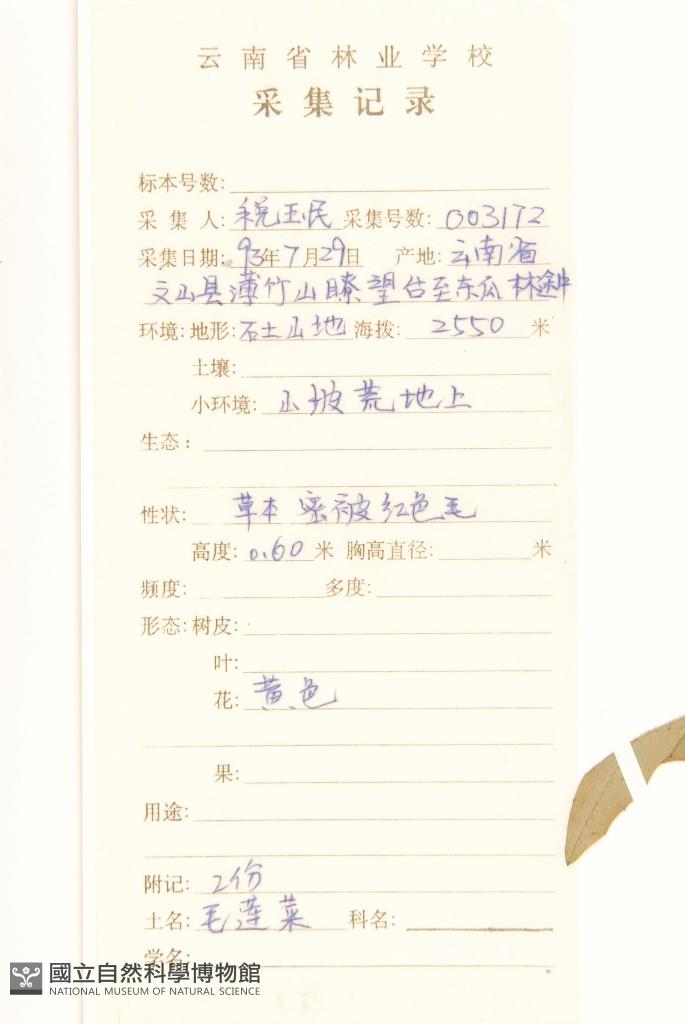 云南省林业学校
采集记录
标本号数:
采集人: 税玉民 采集号数: 003172
采集日期: 93年7月29日 产地: 云南省
文山县薄竹山瞭望台至东瓜林途中
环境: 地形: 石土山地 海拨: 2550 米
土壤:
小环境: 山坡荒地上
生态:
性状: 草本 密被红色毛
高度: 0.60 米 胸高直径: 米
频度: 多度:
形态: 树皮:
叶:
花: 黄色
果:
用途:
附记: 2份
土名: 毛莲菜 科名:
学名:
國立自然科學博物館
NATIONAL MUSEUM OF NATURAL SCIENCE